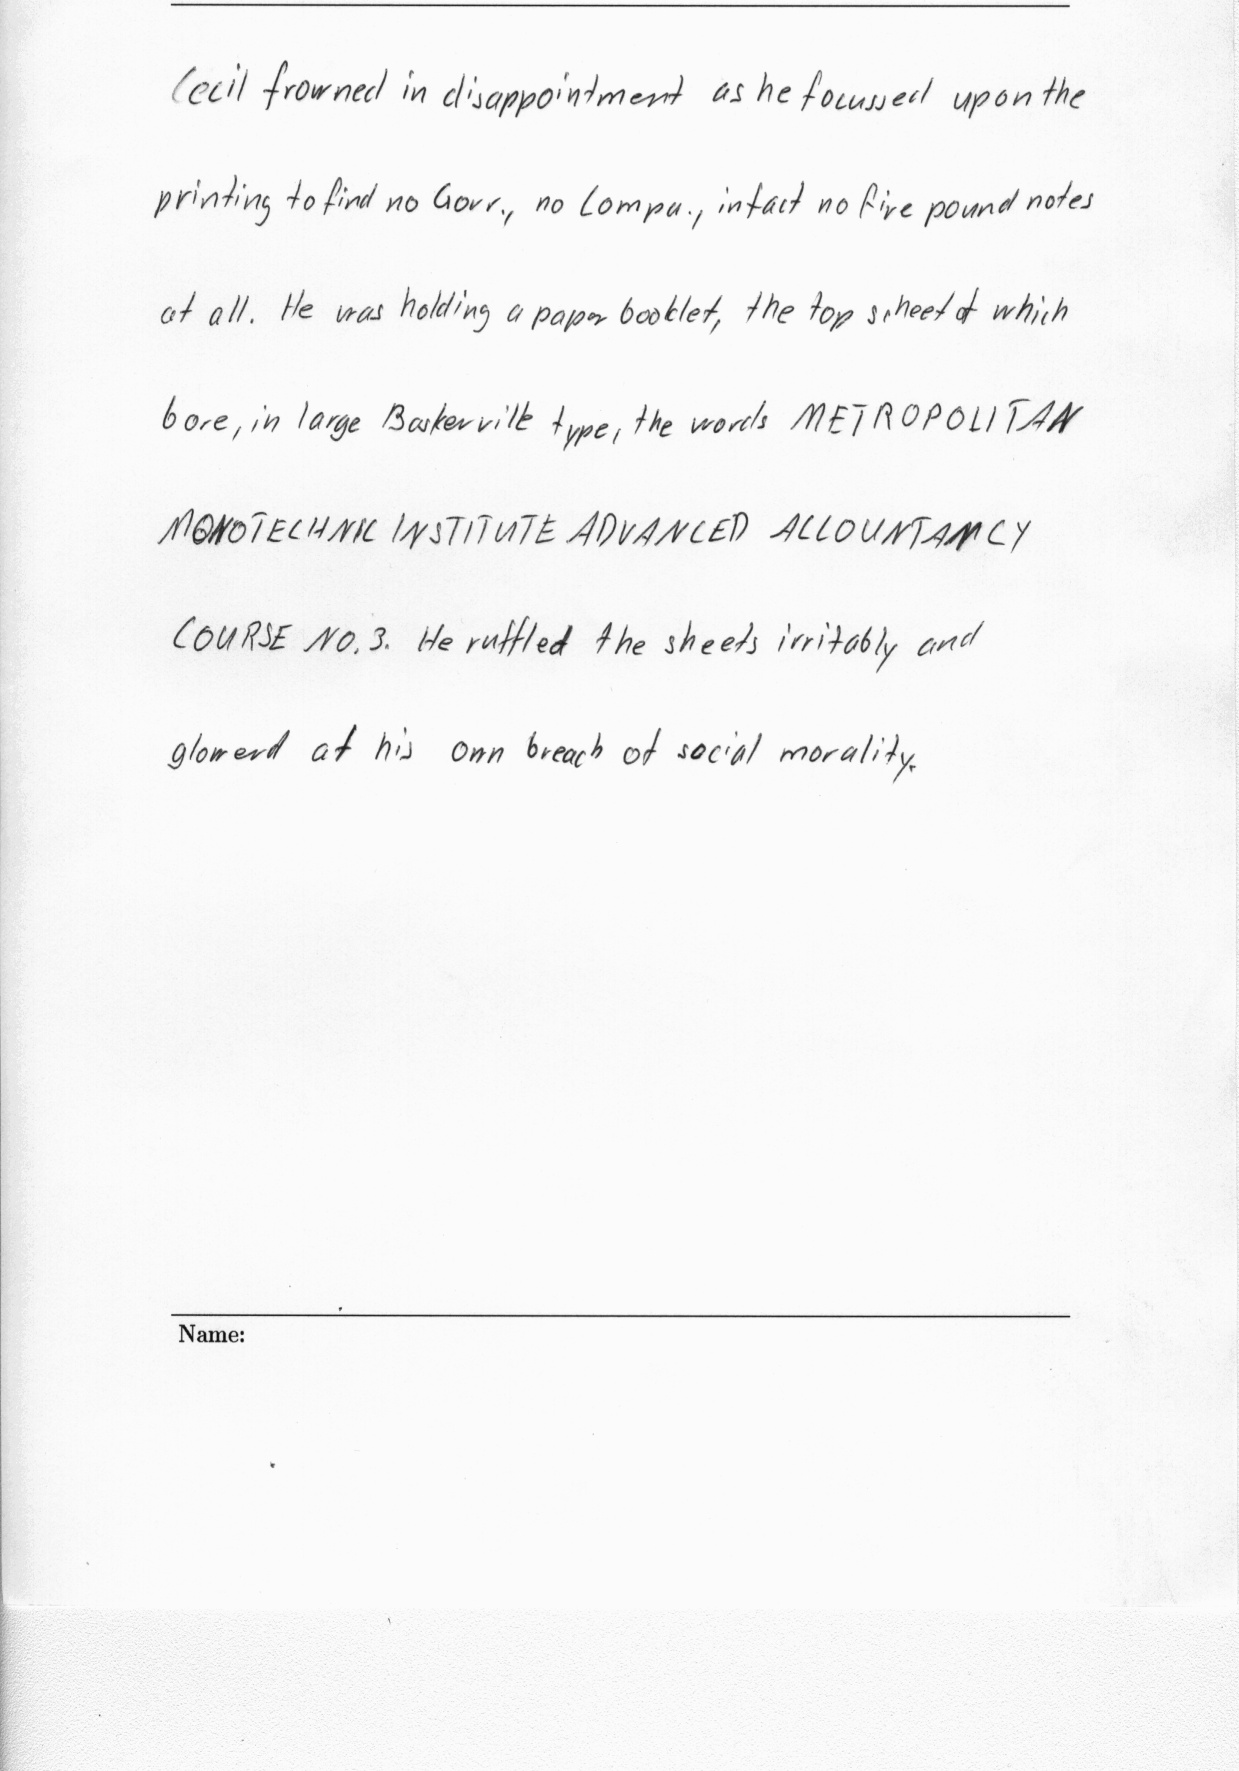 Cecil frowned in disappointment as he focussed upon the
printing to find no Govr., no Compa., in fact no five pound notes
at all. He was holding a paper booklet, the top scheet of which
bore, in large Baskerville type, the words METROPOLITAN
MONOTECHNIC INSTITUTE ADVANCED ACCOUNTANCY
COURSE NO. 3. He ruffled the sheets irritably and
glowerd at his own breach of social morality.
Name: